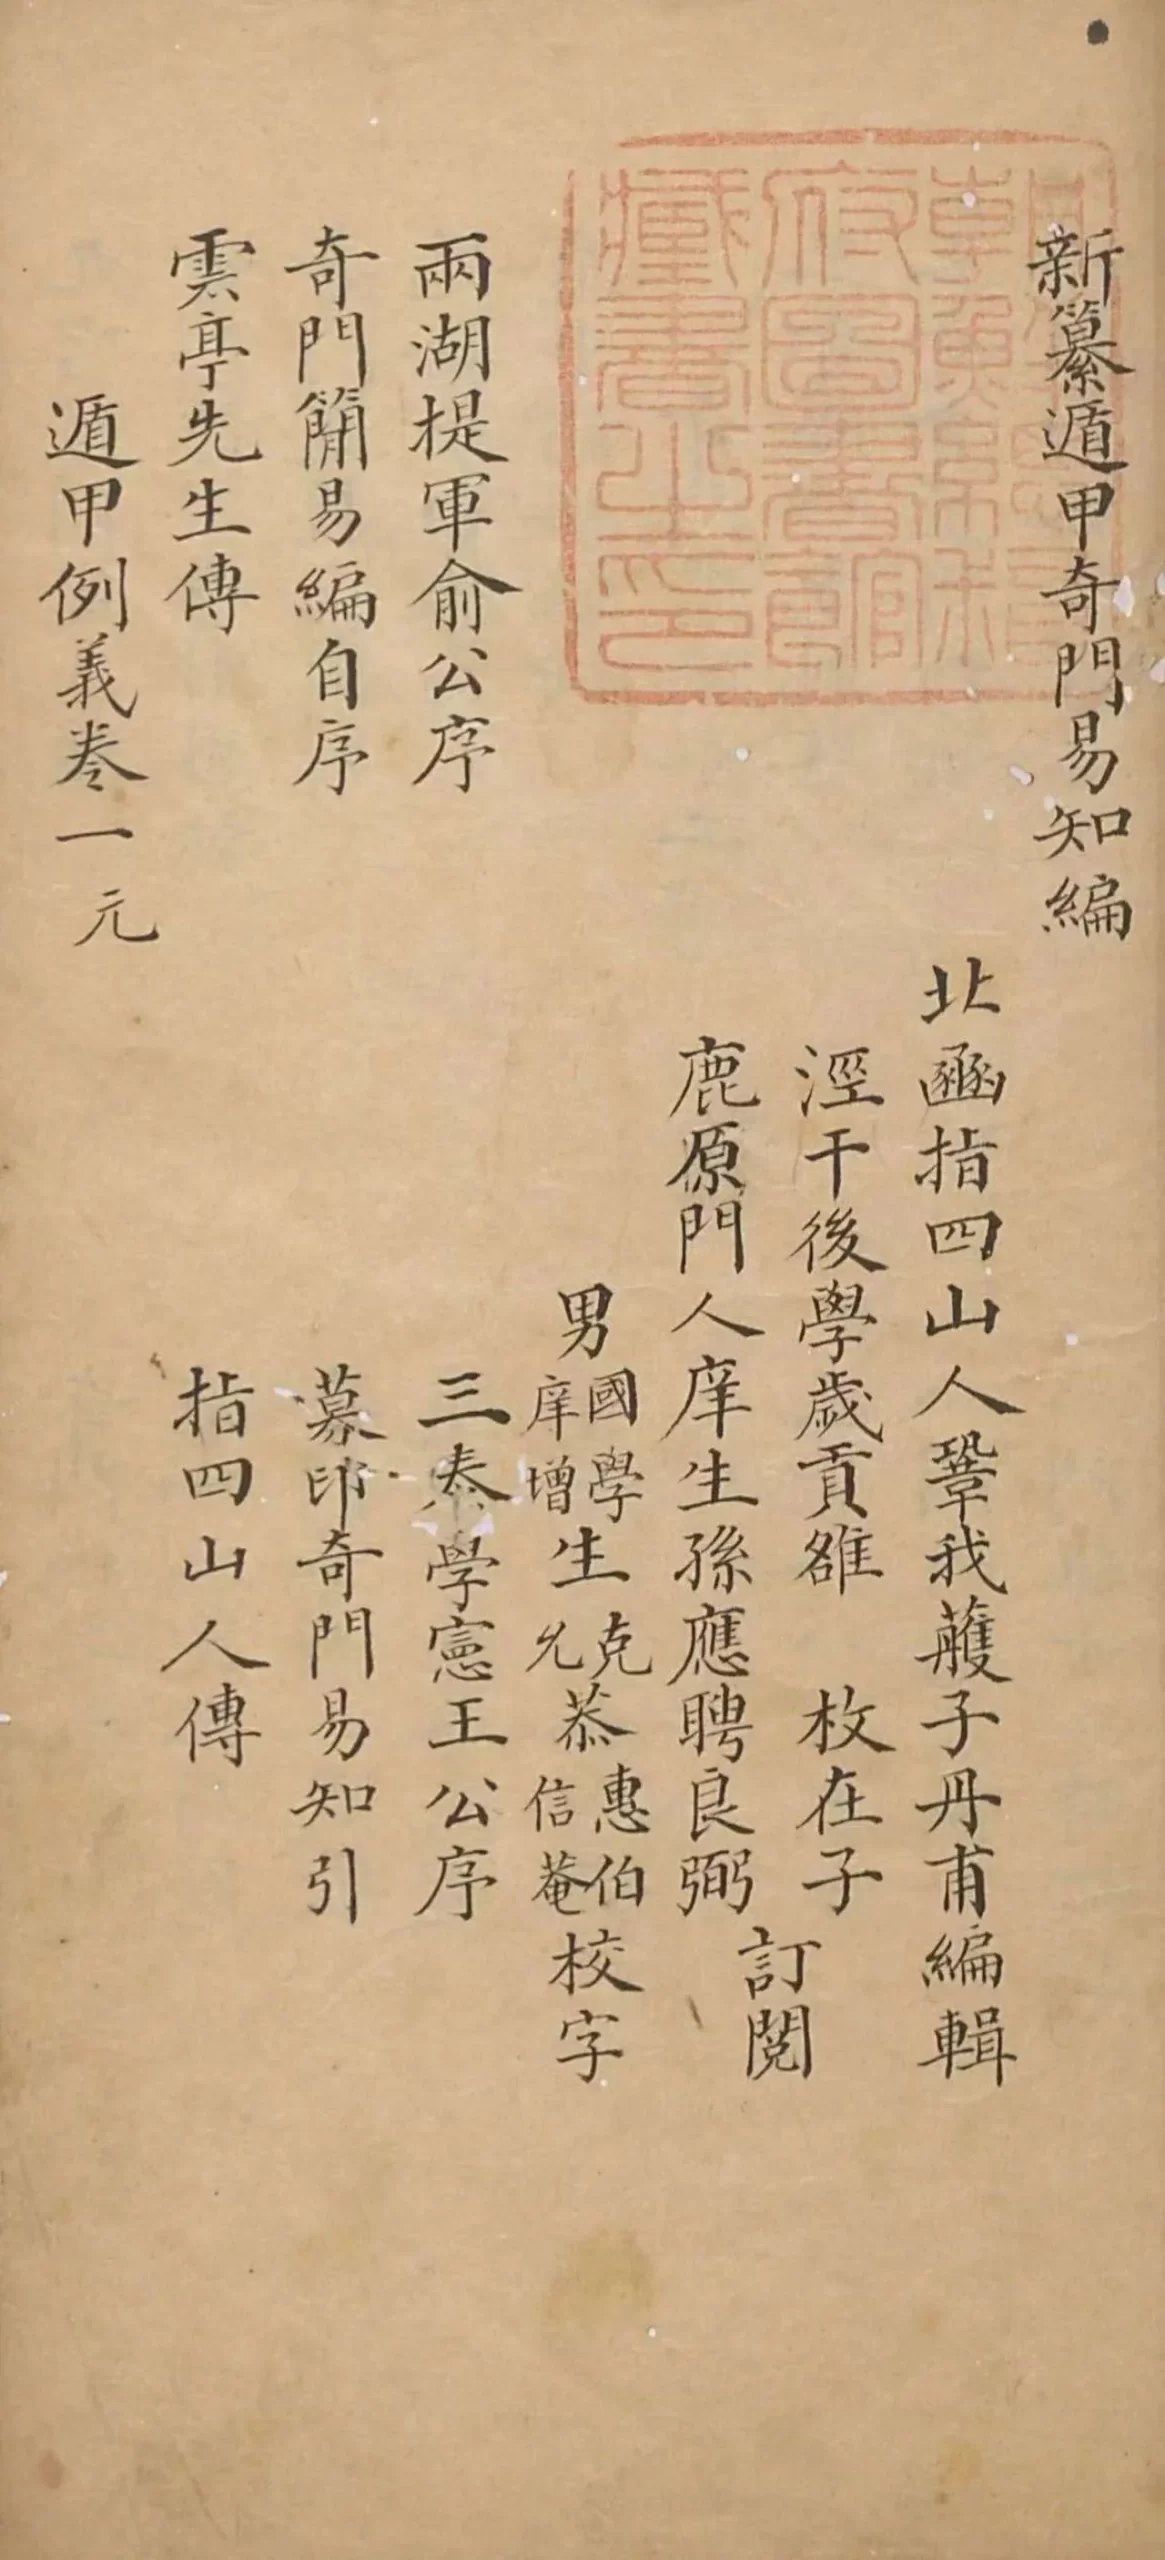 新纂遁甲奇門易知編
北函指四山人鞏我蒦子丹甫編輯
涇干後學歲貢雒 枚在子
鹿原門人庠生孫應聘良弼
訂閱
男國學生克恭惠伯校字
庠增生允恭信菴校字
兩湖提軍俞公序
三秦學憲王公序
奇門簡易編自序
募印奇門易知引
雲亭先生傳
指四山人傳
遁甲例義卷一元
府圖書館
藏書之印